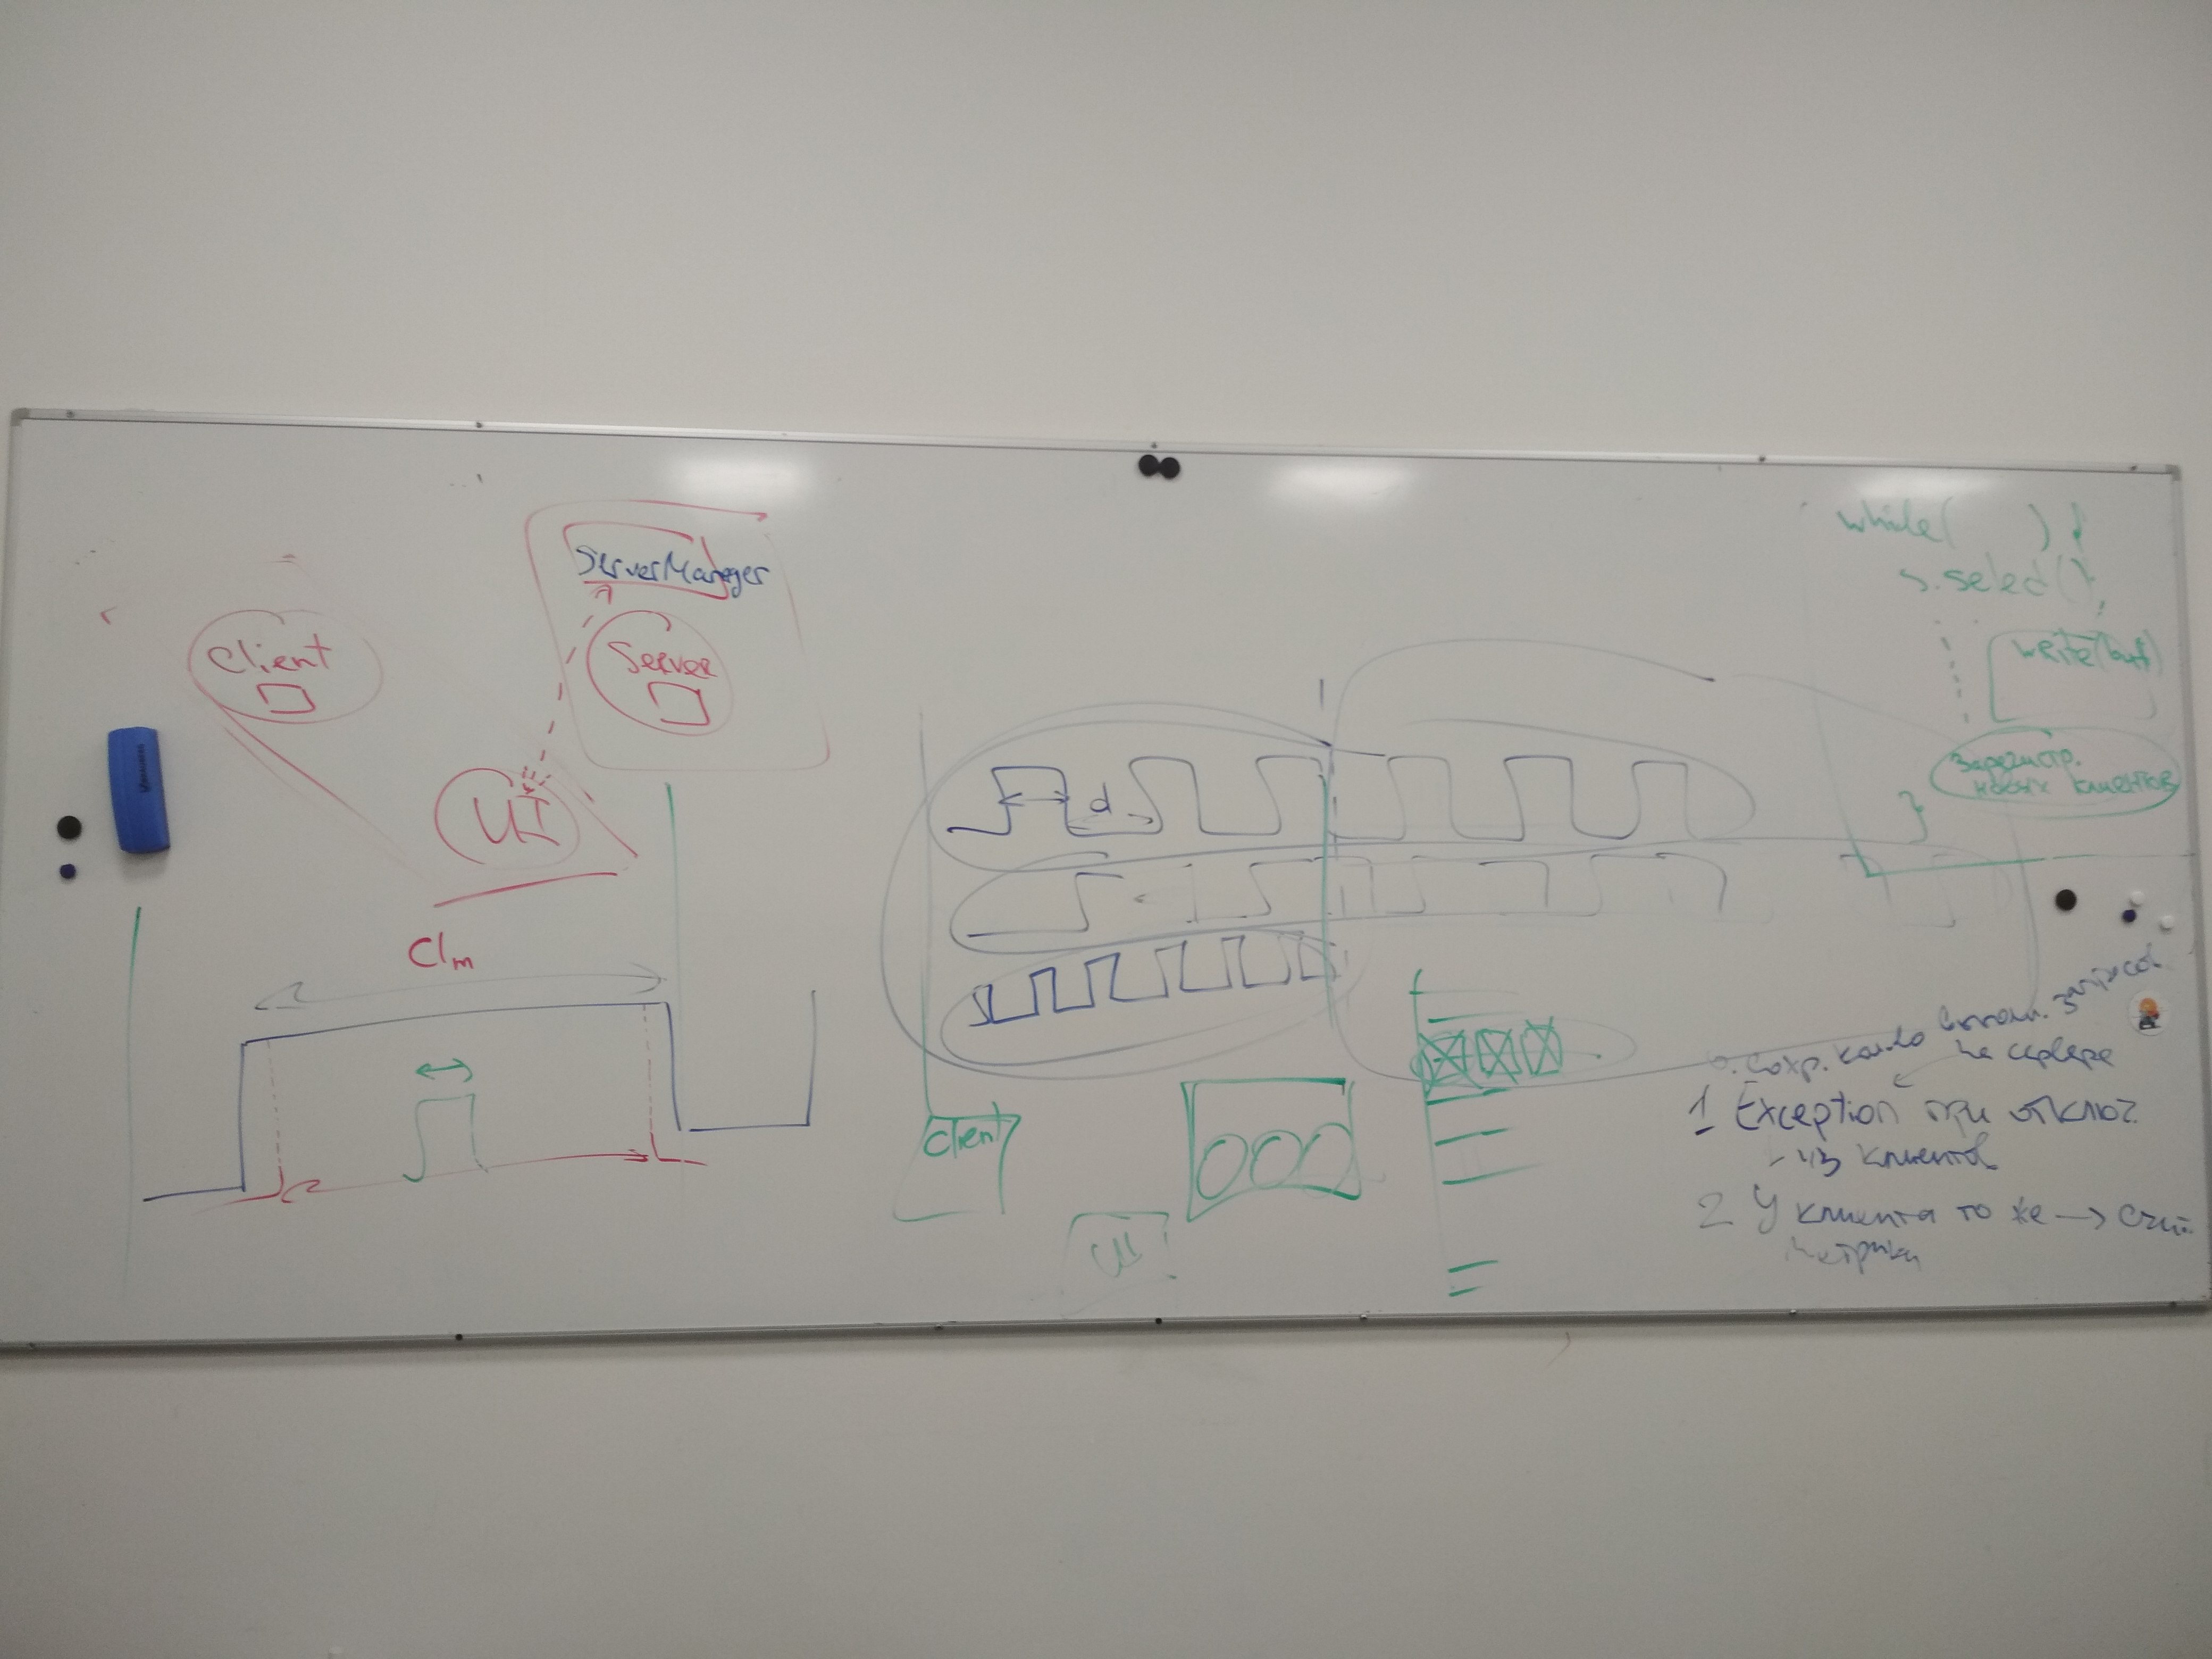 ServerManager
Client
Server
UI
Cl m
d
Client
UI
while( ) {
s.select();
write(buf)
зарегистр.
новых клиентов
}
0. сохр. кол-во выполн. запросов
на сервере
1 Exception при отключ.
из клиентов
2 У клиента то же →
метрики